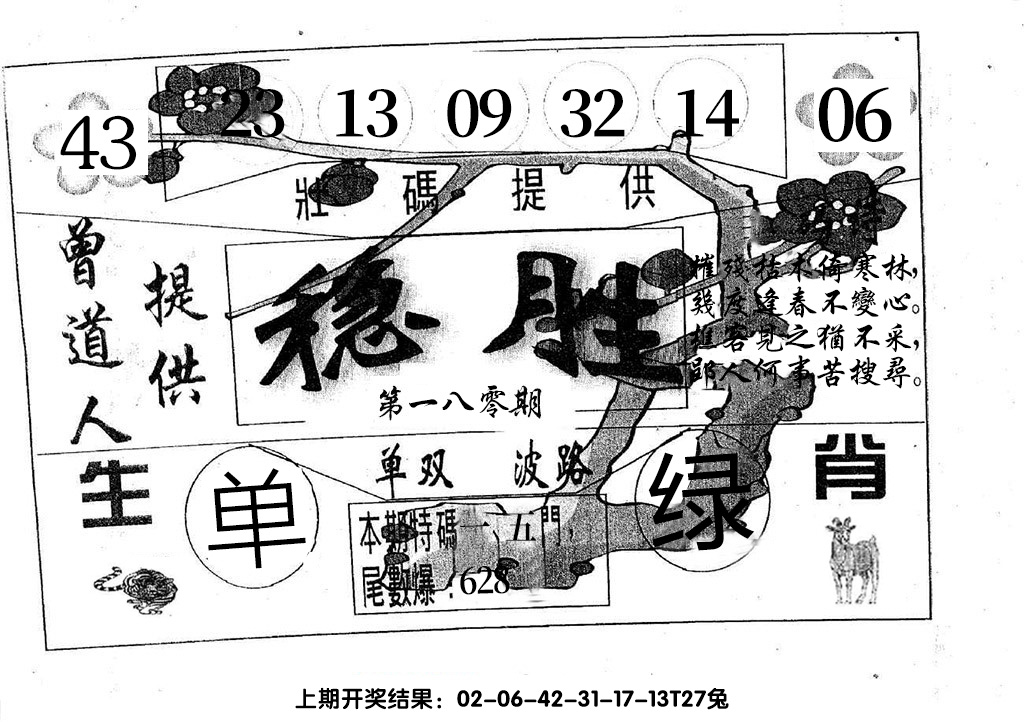 43 23 13 09 32 14 06
壯碼提供
曾道人
提供
稳胜
第一八零期
摧殘枯木倚寒林,
幾度逢春不變心。
樵客見之猶不采,
郢人何事苦搜尋。
单双 波路
生 单 绿 肖
本期特碼一、五門,
尾數爆:628
上期开奖结果：02-06-42-31-17-13T27兔